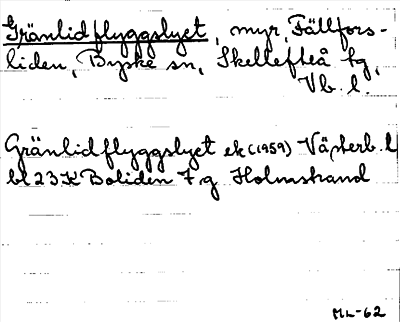 Gränlidflyggslyet, myr, Fällfors-
liden, Byske sn, Skellefteå kg,
Vb. l.
Gränlidflyggslyet ek (1959) Västerb. l
bl 23 K Boliden 7 g Holmstrand
ML-62